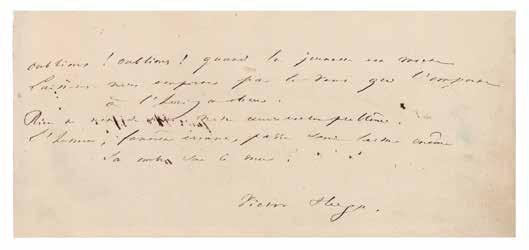 oublions ! oublions ! quand la jeunesse est morte
Laissons nous emporter par le vent qui l'emporte
à l'horizon obscur.
Rien ne notre œuvre est un problème.
L'homme, fantôme errant, passe sans laisser même
Son ombre sur le mur !
Victor Hugo.